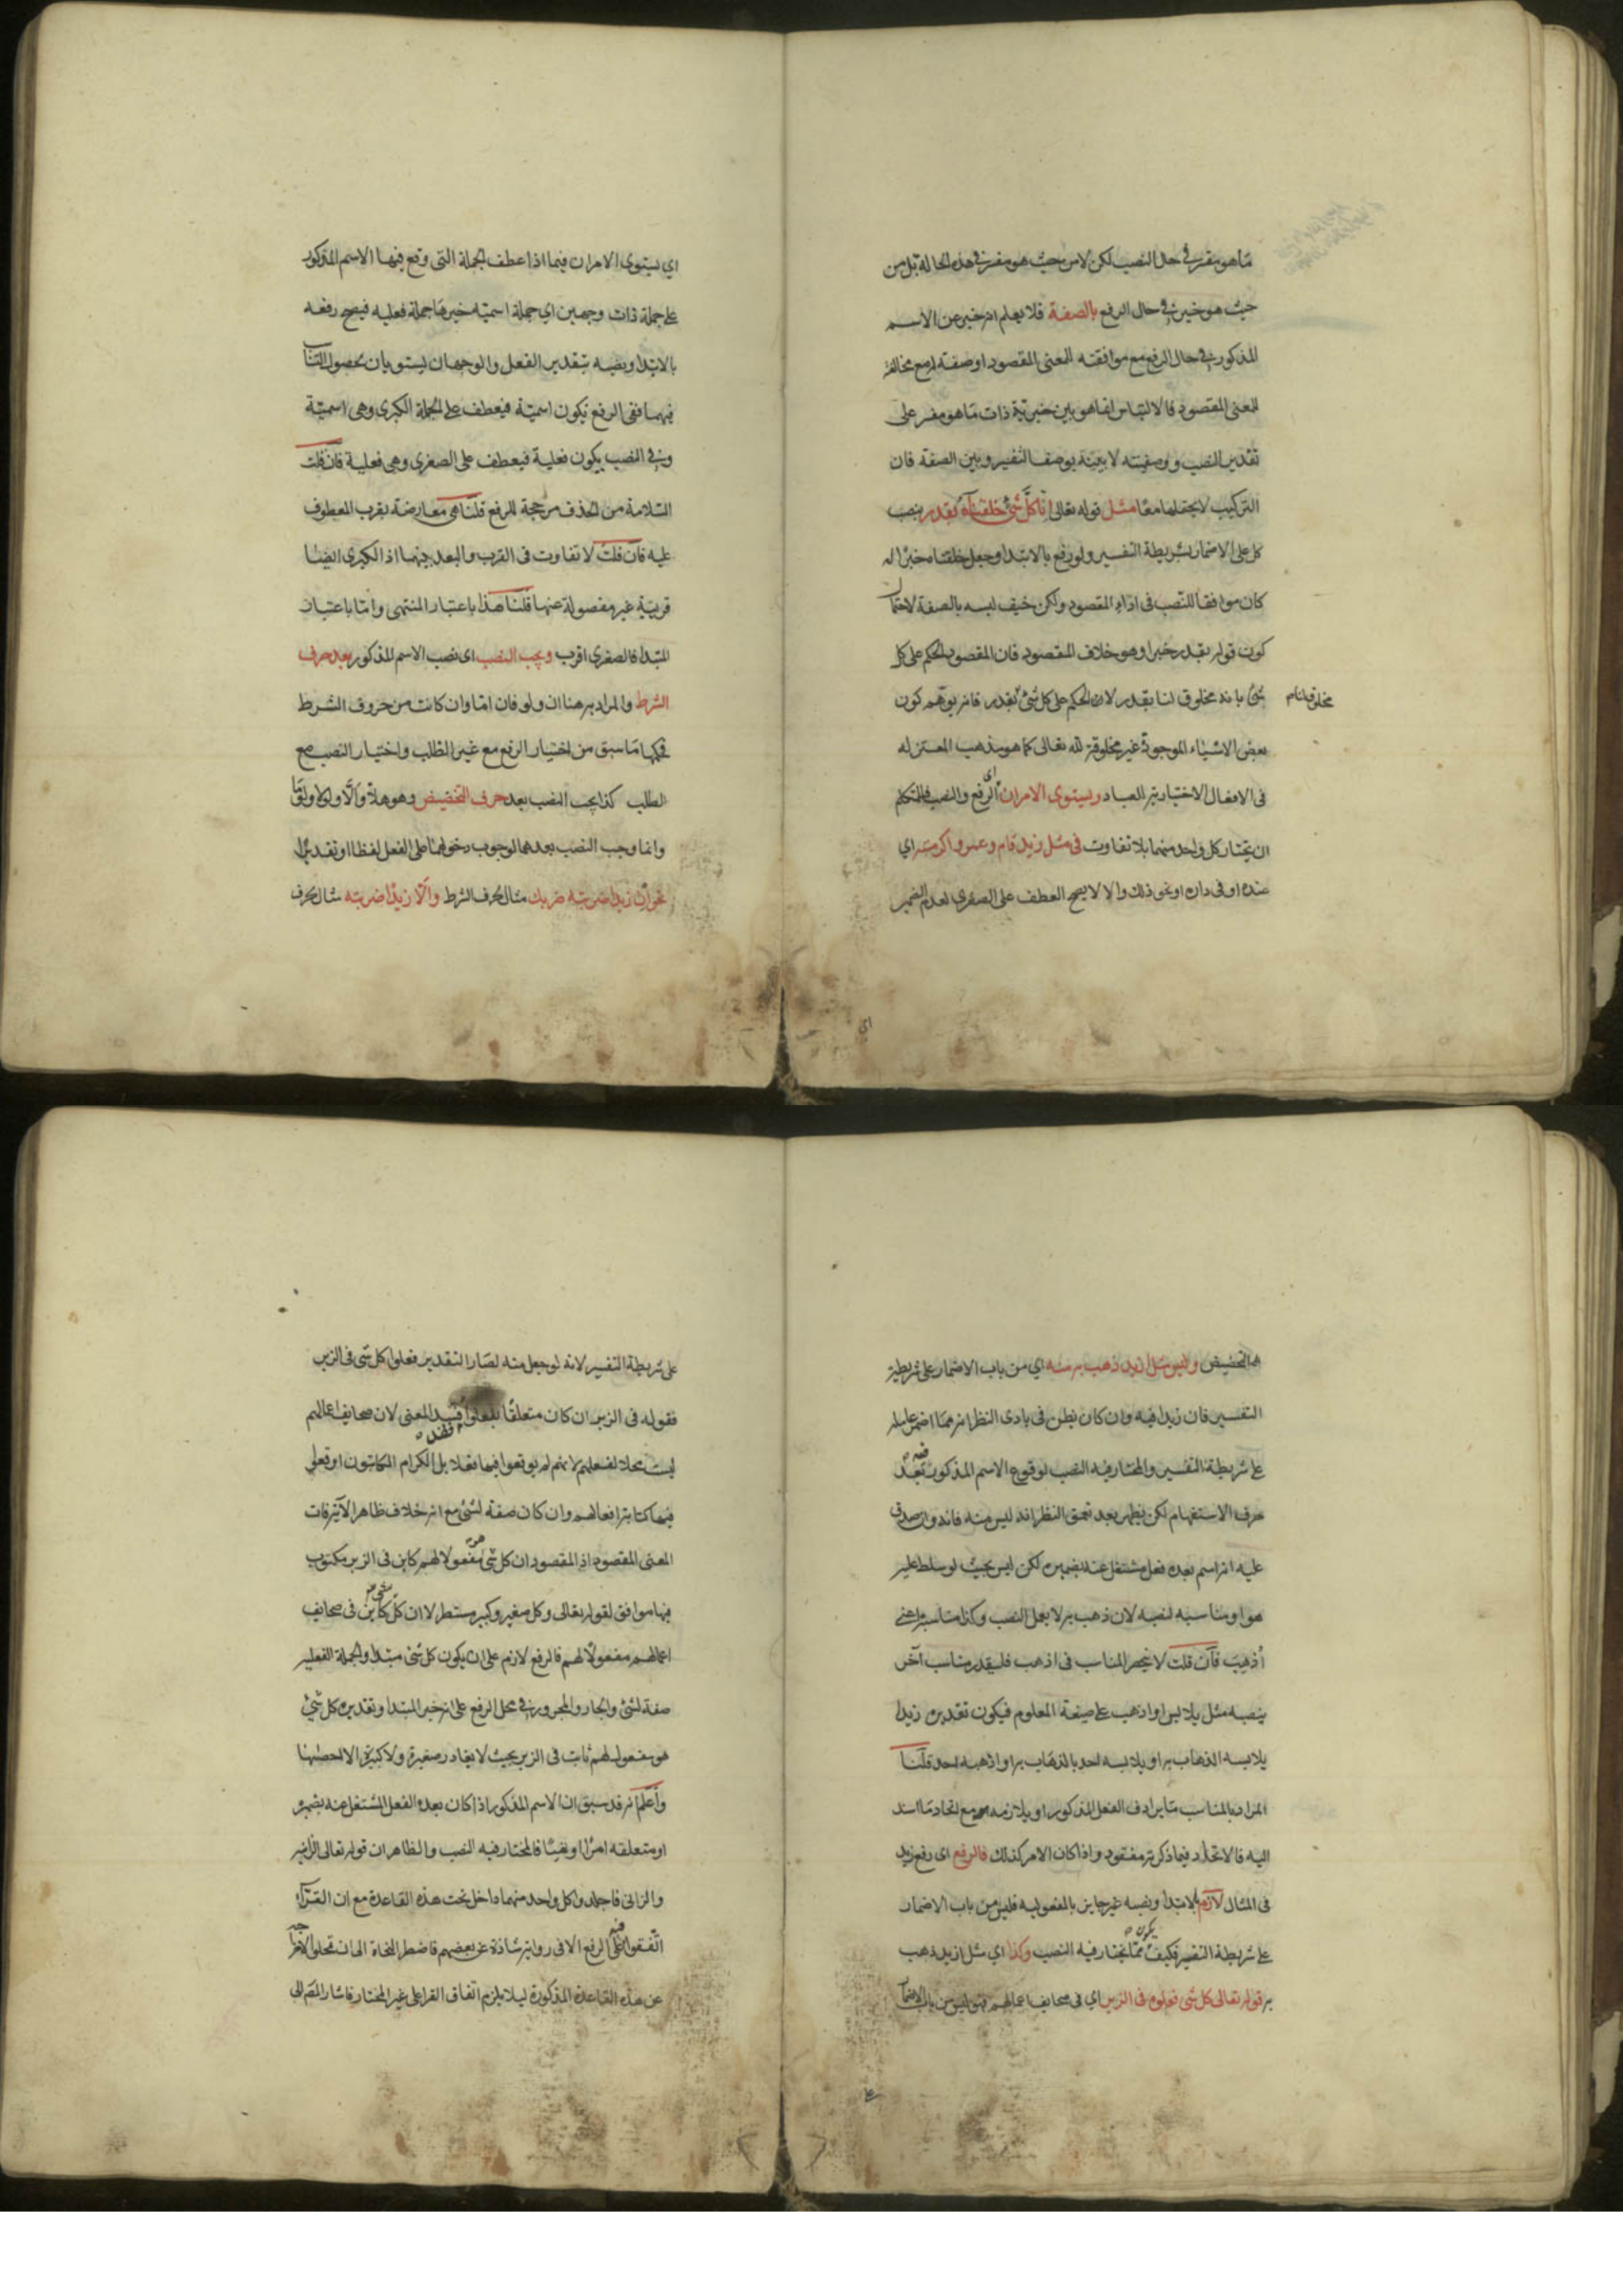 ما هو مفسر في حال النصب لكن لا من حيث هو مفسر في هذه الحالة بل من
حيث هو خبر في حال الرفع بالصفة فلا يعلم انه خبر عن الاسم
المذكور في حال الرفع مع موافقته للمعنى المقصود او صفة له مع مخالفة
للمعنى المقصود فالالتباس انما هو بين خبرية ذات ما هو مفسر على
تقدير النصب ووصفيته لا بينه بوصف التفسير وبين الصفة فان
التركيب لا يحتملهما معا مثل قوله تعالى انا كل شئ خلقناه بقدر بنصب
كل على الاضمار بشريطة التفسير ولو رفع بالابتدا وجعل خلقناه خبرا له
كان موافقا للنصب فى اداء المقصود ولكن خيف لبسه بالصفة لاحتمال
كون قوله بقدر خبرا وهو خلاف المقصود فان المقصود الحكم على كل
شئ بانه مخلوق لنا بقدر لا ان الحكم على كل شئ بقدر فانه يوهم كون
مخلوق لنا
بعض الاشياء الموجودة غير مخلوقة لله تعالى كما هو مذهب المعتزله
فى الافعال الاختيارية للعباد ويستوى الامران اى الرفع والنصب فللمتكلم
ان يختار كل واحد منهما بلا تفاوت فى مثل زيد قام وعمروا اكرمته اي
عنده او فى داره او نحو ذلك والا لا يصح العطف على الصغرى لعدم الضمير
اى
اي يستوى الامران فيما اذا عطف الجملة التى وقع فيها الاسم المذكور
على جملة ذات وجهين اي جملة اسمية خبرها جملة فعلية فيصح رفعه
بالابتدا ونصبه بتقدير الفعل والوجهان يستويان لحصول التناسب
فيهما ففى الرفع يكون اسمية فيعطف على الجملة الكبرى وهى اسمية
وفي النصب يكون فعلية فيعطف على الصغرى وهى فعلية فان قلت
السلامة من الحذف مرجحة للرفع قلنا هى معارضة بقرب المعطوف
عليه فان قلت لا تفاوت فى القرب والبعد بينهما اذ الكبرى ايضا
قريبة غير مفصولة عنها قلنا هذا باعتبار المنتهى واما باعتبار
المبتدا فالصغرى اقرب ويجب النصب اى نصب الاسم المذكور بعد حرف
الشرط والمراد به هنا ان ولو فان اما وان كانت من حروف الشرط
فحكمها ما سبق من اختيار الرفع مع غير الطلب واختيار النصب مع
الطلب كذا يجب النصب بعد حرف التحضيض وهو هلا والا ولولا ولوما
وانما وجب النصب بعدهما لوجوب دخولهما على الفعل لفظا او تقديرا
نحو ان زيدا ضربته ضربك مثال لحرف الشرط والا زيدا ضربته مثال لحرف
التحضيض وليس مثل ازيد ذهب به منه اي من باب الاضمار على شريطة
التفسير فان زيدا فيه وان كان يظن فى بادى النظر انه مما اضمر عامله
على شريطة التفسير والمختار فيه النصب لوقوع الاسم المذكور فيه بعد
حرف الاستفهام لكن يظهر بعد تعمق النظر انه ليس منه فانه وان صدق
عليه انه اسم بعده فعل مشتغل عنه بضميره لكن ليس بحيث لو سلط عليه
هو او مناسبه لنصبه لان ذهب به لا يعمل النصب وكذا مناسبه اعنى
أذهب فان قلت لا ينحصر المناسب فى اذهب فليقدر مناسب آخر
ينصبه مثل يلابس او اذهب على صيغة المعلوم فيكون تقديره زيدا
يلابسه الذهاب به او يلابسه احد بالذهاب به او اذهبه احد قلنا
المراد بالمناسب ما يرادف الفعل المذكور او يلازمه مع اتحاد ما اسند
اليه فالاتحاد فيما ذكرته مفقود واذا كان الامر كذلك فالرفع اى رفع زيد
فى المثال لازم بالابتدا ونصبه غير جايز بالمفعوليه فليس من باب الاضمار
على شريطة التفسير فكيف يكون مما يختار فيه النصب وكذا اي مثل ازيد ذهب
به قوله تعالى كل شى فعلوه فى الزبر اي فى صحايف اعمالهم فهو ليس من باب الاضمار
على
على شريطة التفسير لانه لو جعل منه لصار التقدير فعلوا كل شى فى الزبر
فقوله فى الزبر ان كان متعلقا بفعلوا فسد المعنى لان صحايف اعمالهم
ليست محلا لفعلهم لانهم لم يوقعوا فيها فعلا بل الكرام الكاتبون اوقعوا
فيها كتابة افعالهم وان كان صفة لشئ مع انه خلاف ظاهر الآية فات
المعنى المقصود اذ المقصود ان كل شى هو مفعول لهم كاين فى الزبر مكتوب
فيها موافق لقوله تعالى وكل صغير وكبير مستطر لا ان كل شى كاين فى صحايف
اعمالهم مفعولا لهم فالرفع لازم على ان يكون كل شئ مبتدا والجملة الفعلية
صفة لشئ والجار والمجرور في محل الرفع على انه خبر المبتدا وتقديره كل شئ
هو مفعول لهم ثابت فى الزبر بحيث لا يغادر صغيرة ولا كبيرة الا احصيها
واعلم انه قد سبق ان الاسم المذكور اذا كان بعده الفعل المشتغل عنه بضميره
او متعلقه امرا او نهيا فالمختار فيه النصب والظاهر ان قوله تعالى الزانية
والزانى فاجلدوا كل واحد منهما داخل تحت هذه القاعدة مع ان القراء
اتفقوا فيه على الرفع الا فى رواية شاذة عن بعضهم فاضطر النحاة الى ان تمحلوا لاخراجه
عن هذه القاعدة المذكورة ليلا يلزم اتفاق القرا على غير المختار فاشار المص الى